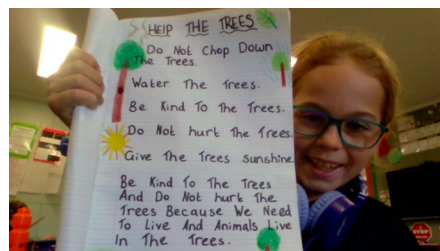 HELP THE TREES
Do Not Chop Down
The Trees.
Water The Trees.
Be Kind To The Trees.
Do Not hurt The Trees.
Give The Trees sunshine
Be Kind To The Trees
And Do Not hurt The
Trees Because We Need
To Live And Animals Live
In The Trees.